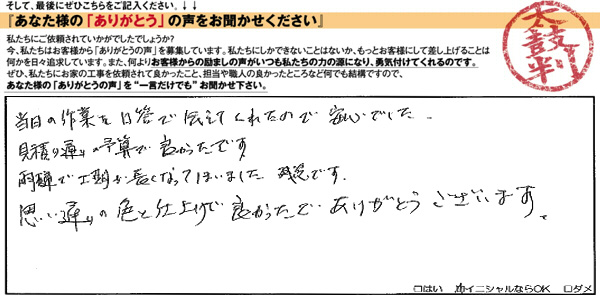 そして、最後にぜひこちらをご記入ください。↓↓
『あなた様の「ありがとう」の声をお聞かせください』
私たちにご依頼されていかがでしたでしょうか?
今、私たちはお客様から「ありがとうの声」を募集しています。私たちにしかできないことはないか、もっとお客様にして差し上げることは
何かを日々追求しています。また、何よりお客様からの励ましの声がいつも私たちの力の源になり、勇気付けてくれるのです。
ぜひ、私たちにお家の工事を依頼されて良かったこと、担当や職人の良かったところなど何でも結構ですので、
あなた様の「ありがとうの声」を“一言だけでも”お聞かせ下さい。
太鼓判
当日の作業を日答で伝えてくれたので安心でした。
見積り通りの予算で良かったです
雨確で工期が長くなってしまいました 残念です。
思い通りの色と仕上げで良かったでありがとうございます。
□はい イニシャルならOK □ダメ